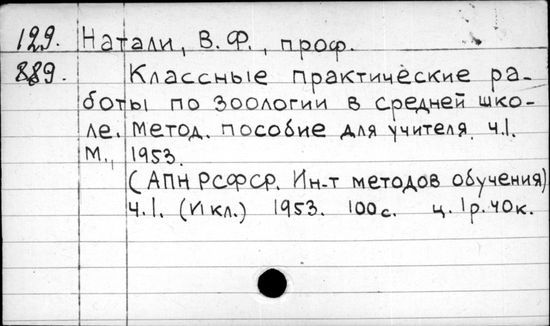 129. Натали, В.Ф., проф.
889. Классные практические ра-
боты по зоологии в средней шко-
ле. Метод. пособие для учителя. ч.1.
М., 1953.
(АПН РСФСР. Ин-т методов обучения)
ч.1. (и кл.) 1953. 100с. ц. 1р.40к.